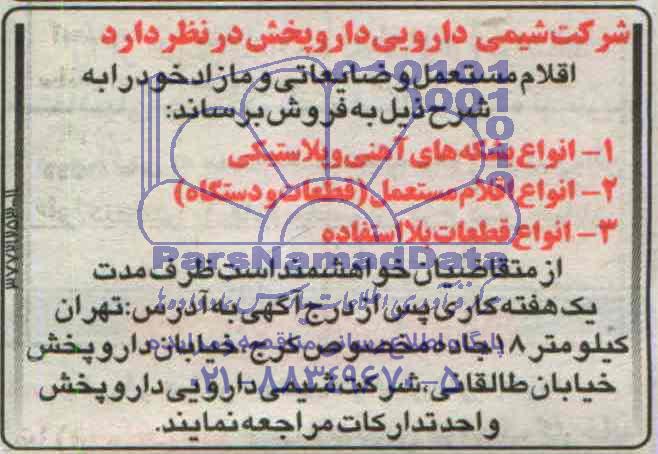 شرکت شیمی دارویی داروپخش در نظر دارد
اقلام مستعمل و ضایعاتی و مازاد خود را به
شرح ذیل به فروش برساند:
۱- انواع بشکه های آهنی و پلاستیکی
۲- انواع اقلام مستعمل (قطعات و دستگاه)
۳- انواع قطعات بلااستفاده
از متقاضیان خواهشمند است ظرف مدت
یک هفته کاری پس از درج آگهی به آدرس: تهران
کیلومتر ۱۸ جاده مخصوص کرج، خیابان داروپخش
خیابان طالقانی، شرکت شیمی دارویی داروپخش
واحد تدارکات مراجعه نمایند.
ParsNamadData
۰۲۱-۸۸۳۴۹۶۷۰-۵